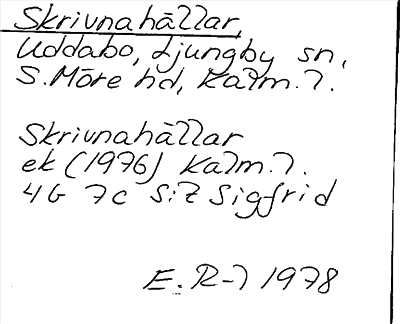 Skrivnahällar,
Uddabo, Ljungby sn,
S. Möre hd, Kalm. l.
Skrivnahällar
ek (1976) Kalm. l.
4G 7c S:t Sigfrid
E. R-l 1978